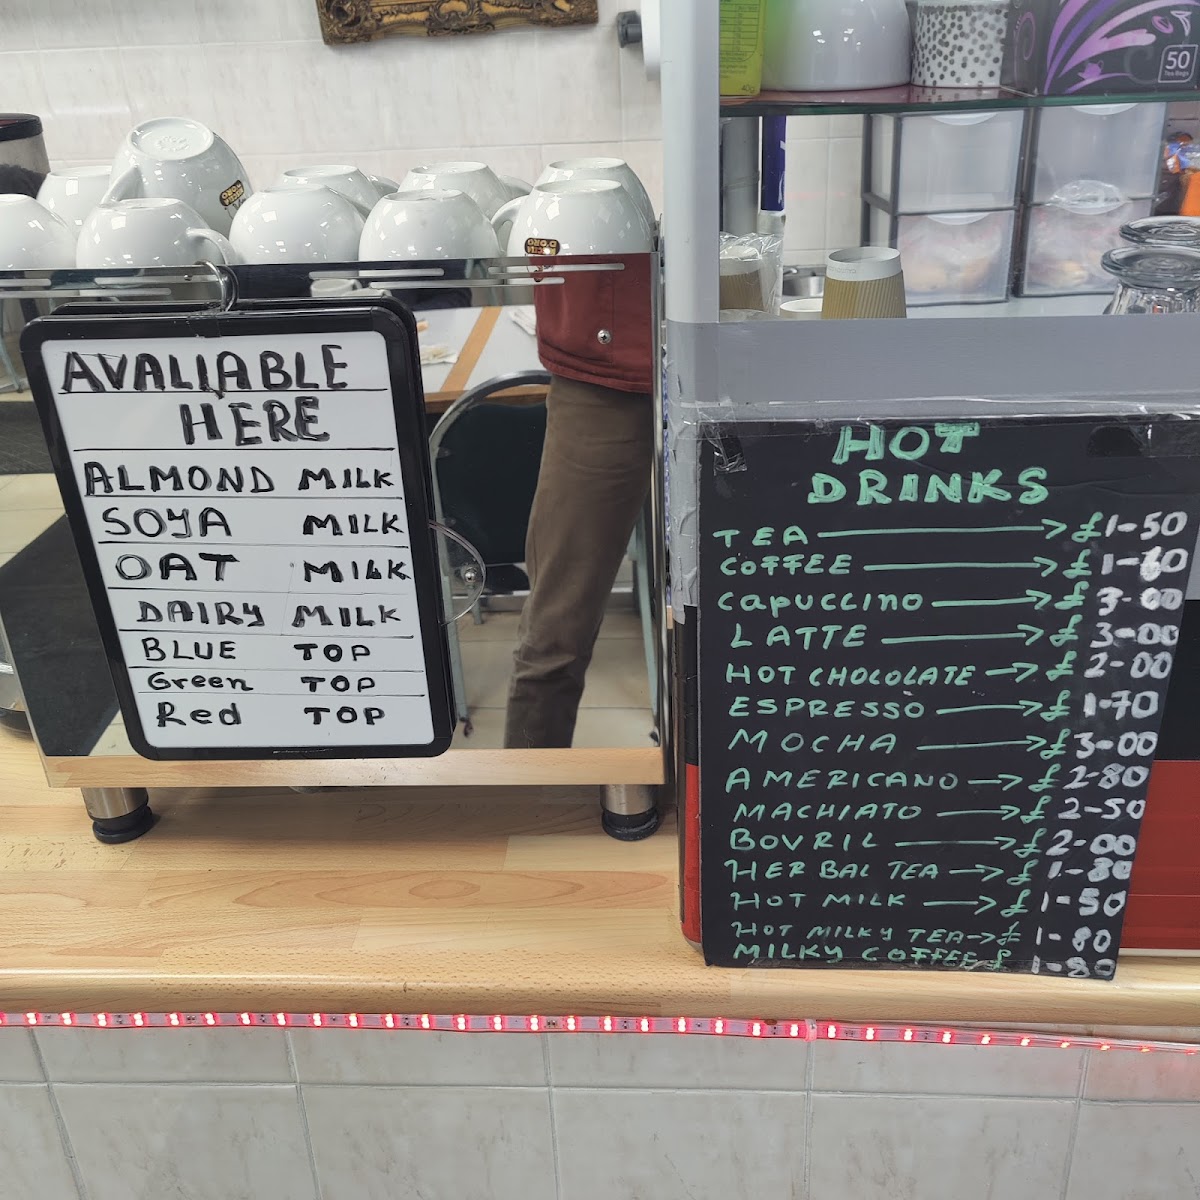 AVALIABLE
HERE
ALMOND MILK
SOYA MILK
OAT MILK
DAIRY MILK
BLUE TOP
Green TOP
Red TOP
50
Tea Bags
HOT
DRINKS
TEA £1-50
COFFEE £
Capuccino £ 3-00
LATTE £ 3-00
HOT CHOCOLATE £ 2-00
ESPRESSO £ 1-70
MOCHA £ 3-00
AMERICANO £ 2-80
MACHIATO £ 2-50
BOVRIL £ 2-00
HERBAL TEA £ 1-80
HOT MILK £ 1-50
HOT MILKY TEA £ 1-80
MILKY COFFEE £ 1-80